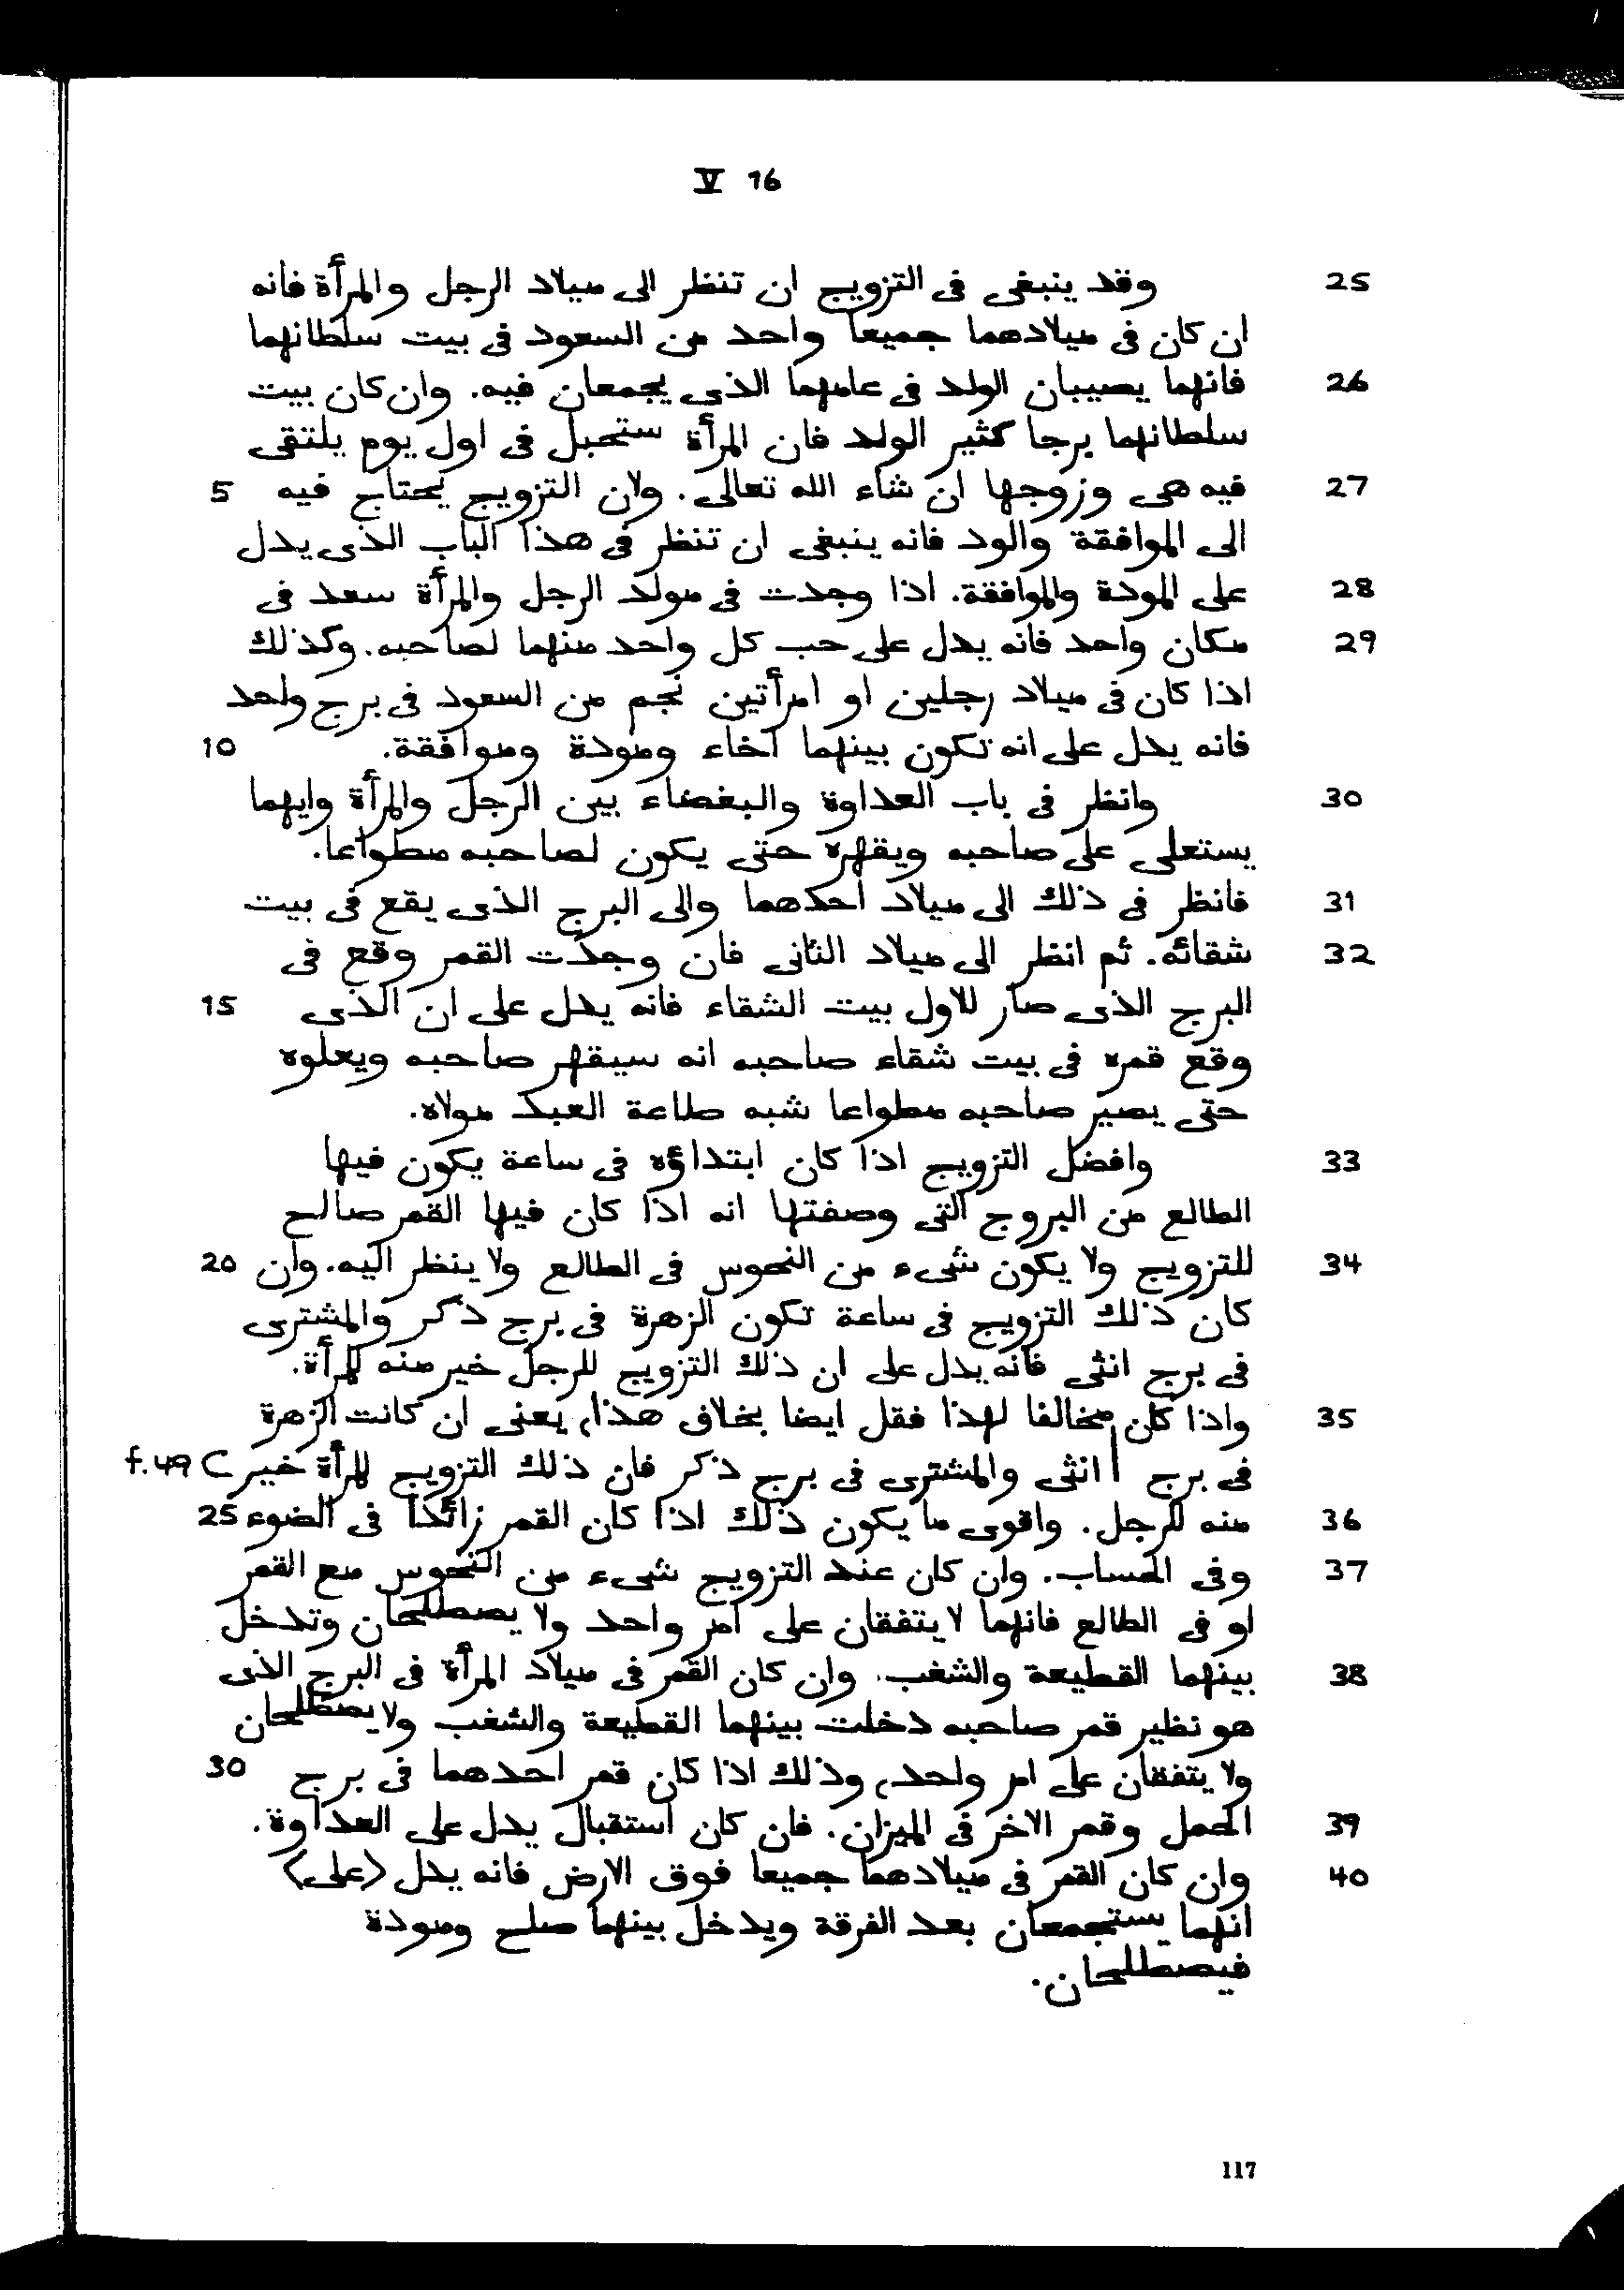 V 16
25 وقد ينبغى فى التزويج ان تنظر الى ميلاد الرجل والمرأة فانه
ان كان فى ميلادهما جميعا واحد من السعود فى بيت سلطانهما
26 فانهما يصيبان الولد فى عامهما الذى يجمعان فيه. وان كان بيت
سلطانهما برجا كثير الولد فان المرأة ستحبل فى اول يوم يلتقى
27 فيه هى وزوجها ان شاء الله تعالى. ولان التزويج يحتاج فيه 5
الى الموافقة والود فانه ينبغى ان تنظر فى هذا الباب الذى يدل
28 على المودة والموافقة. اذا وجدت فى مولد الرجل والمرأة سعد فى
29 مكان واحد فانه يدل على حب كل واحد منهما لصاحبه. وكذلك
اذا كان فى ميلاد رجلين او امرأتين نجم من السعود فى برج واحد
فانه يدل على انه تكون بينهما اخاء ومودة وموافقة. 10
30 وانظر فى باب العداوة والبغضاء بين الرجل والمرأة وايهما
يستعلى على صاحبه ويقهره حتى يكون لصاحبه مطواعا.
31 فانظر فى ذلك الى ميلاد احدهما والى البرج الذى يقع فى بيت
32 شقائه. ثم انظر الى ميلاد الثانى فان وجدت القمر وقع فى
البرج الذى صار للاول بيت الشقاء فانه يدل على ان الذى 15
وقع قمره فى بيت شقاء صاحبه انه سيقهر صاحبه ويعلوه
حتى يصير صاحبه مطواعا شبه طاعة العبد مولاه.
33 وافضل التزويج اذا كان ابتداؤه فى ساعة يكون فيها
الطالع من البروج التى وصفتها انه اذا كان فيها القمر صالح
34 للتزويج ولا يكون شىء من النحوس فى الطالع ولا ينظر اليه. وان 20
كان ذلك التزويج فى ساعة تكون الزهرة فى برج ذكر والمشترى
فى برج انثى فانه يدل على ان ذلك التزويج للرجل خير منه للمرأة.
35 واذا كان مخالفا لهذا فقل ايضا بخلاف هذا، يعنى ان كانت الزهرة
فى برج | انثى والمشترى فى برج ذكر فان ذلك التزويج للمرأة خير f.49 C
36 منه للرجل. واقوى ما يكون ذلك اذا كان القمر زائدا فى الضوء 25
37 وفى الحساب. وان كان عند التزويج شىء من النحوس مع القمر
او فى الطالع فانهما لا يتفقان على امر واحد ولا يصطلحان وتدخل
38 بينهما القطيعة والشغب. وان كان القمر فى ميلاد المرأة فى البرج الذى
هو نظير قمر صاحبه دخلت بينهما القطيعة والشغب ولا يصطلحان
ولا يتفقان على امر واحد، وذلك اذا كان قمر احدهما فى برج 30
39 الحمل وقمر الاخر فى الميزان. فان كان استقبال يدل على العداوة.
40 وان كان القمر فى ميلادهما جميعا فوق الارض فانه يدل <على>
انهما يستجمعان بعد الفرقة ويدخل بينهما صلح ومودة
فيصطلحان.
117